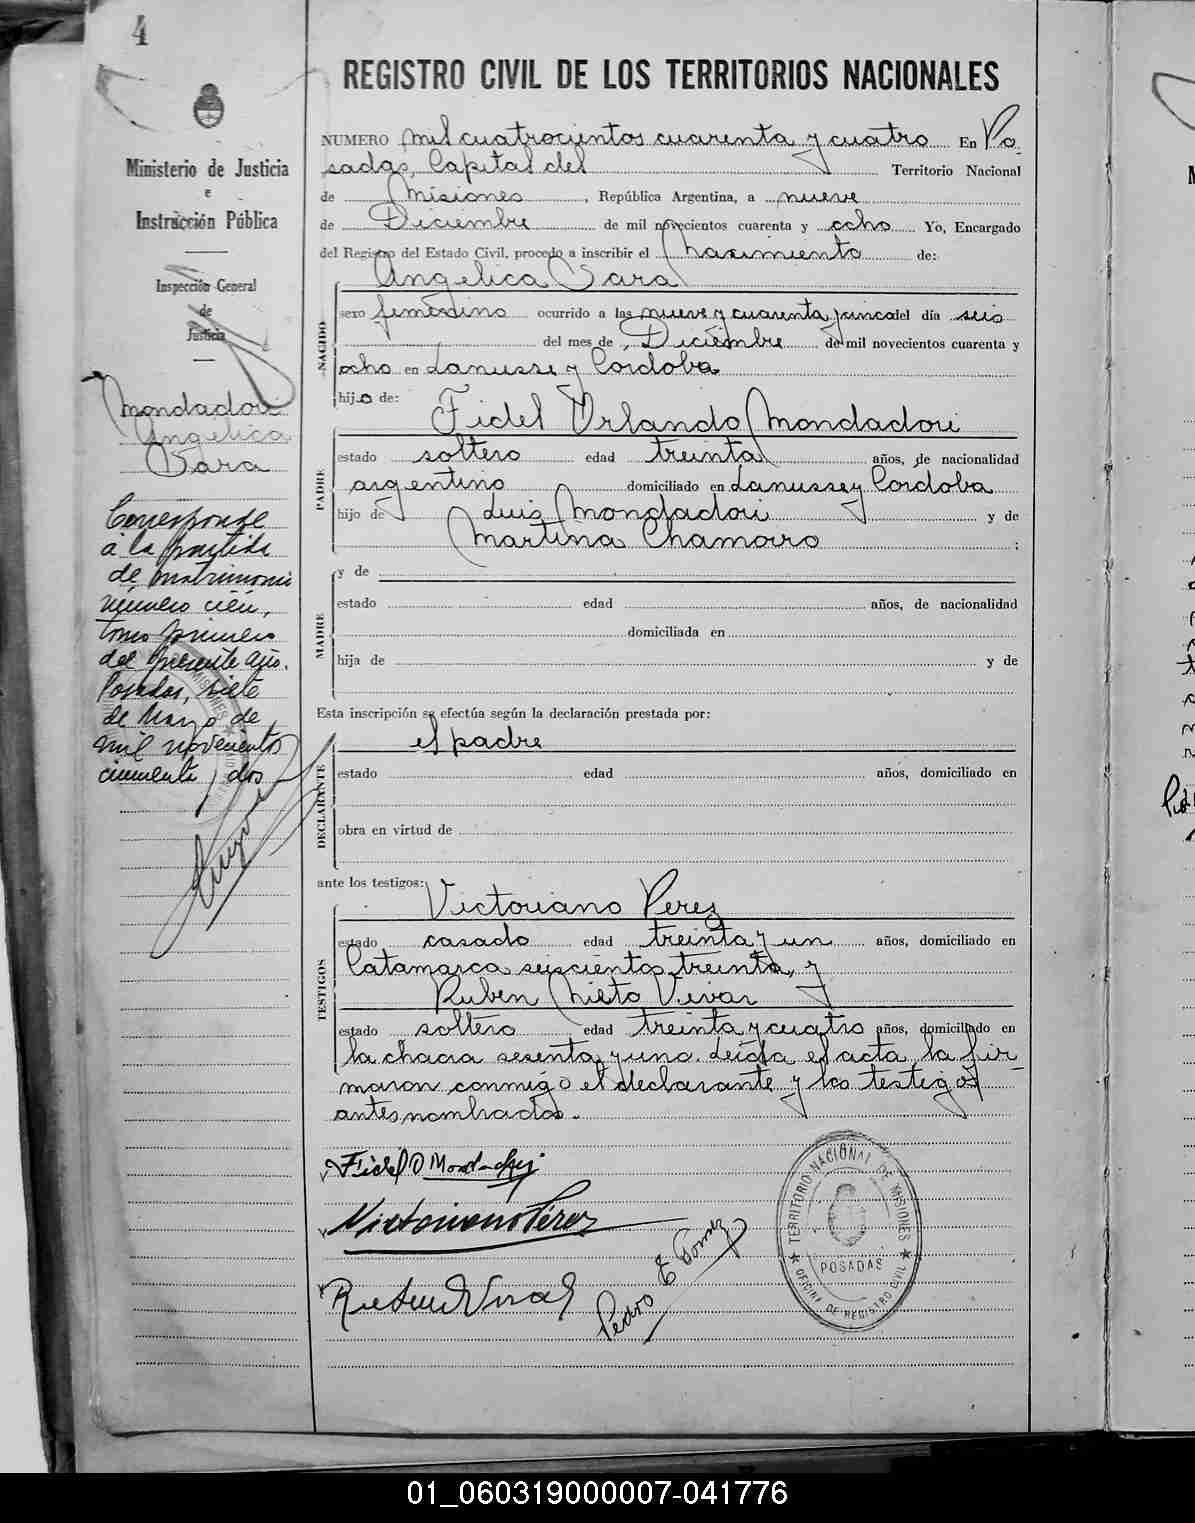 4
REGISTRO CIVIL DE LOS TERRITORIOS NACIONALES
Ministerio de Justicia
e
Instrucción Pública
Inspección General
de
Justicia
Mondadori
Angelica
Sara
Corresponde
a la partida
de matrimonio
número cien,
tomo primero
del presente año.
Posadas, siete
de Marzo de
mil novecientos
cincuenta y dos
NUMERO mil cuatrocientos cuarenta y cuatro En Po
sadas, Capital del Territorio Nacional
de Misiones, República Argentina, a nueve
de Diciembre de mil novecientos cuarenta y ocho Yo, Encargado
del Registro del Estado Civil, procedo a inscribir el Nacimiento de:
Angelica Sara
NACIDO
sexo femenino ocurrido a las nueve y cuarenta y cinco del día seis
del mes de Diciembre de mil novecientos cuarenta y
ocho en Lanusse y Cordoba
hijo de:
Fidel Orlando Mondadori
PADRE
estado soltero edad treinta años, de nacionalidad
argentino domiciliado en Lanusse y Cordoba
hijo de Luis Mondadori y de
Martina Chamorro ;
MADRE
y de
estado edad años, de nacionalidad
domiciliada en
hija de y de
Esta inscripción se efectúa según la declaración prestada por:
el padre
DECLARANTE
estado edad años, domiciliado en
obra en virtud de
ante los testigos:
Victoriano Perez
TESTIGOS
estado casado edad treinta y un años, domiciliado en
Catamarca seiscientos treinta, y
Ruben Nieto Vivar
estado soltero edad treinta y cuatro años, domiciliado en
la chacra sesenta y uno. Leída el acta la fir
maron conmigo el declarante y los testigos
antes nombrados.
Fidel O Mondadori
Victoriano Pérez
Pedro E Gomez
TERRITORIO NACIONAL DE MISIONES
POSADAS
OFICINA DE REGISTRO CIVIL
01_060319000007-041776